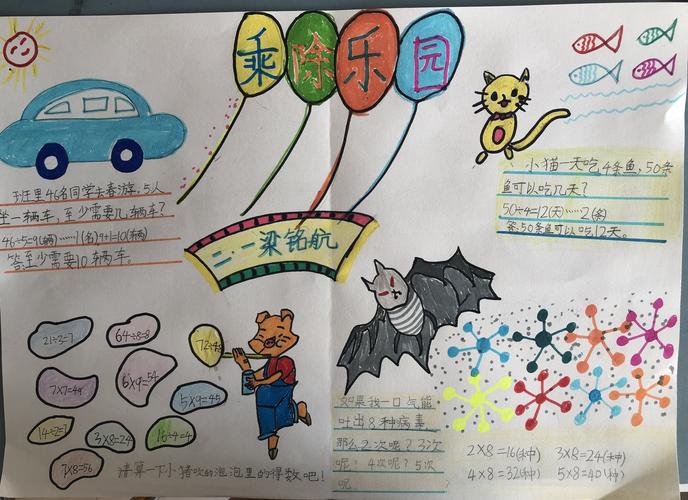 乘除乐园
班里46名同学去春游,5人
坐一辆车,至少需要几辆车?
46÷5=9(辆)……1(名)9+1=10(辆)
答至少需要10辆车。
二·一梁铭航
小猫一天吃4条鱼,50条
鱼可以吃几天?
50÷4=12(天)……2(条)
答:50条鱼可以吃12天。
21÷3=7
64÷8=8
72÷
7×7=49
6×9=54
5×9=45
14÷2=7
3×8=24
16÷4=4
7×8=56
计算一下小猪吹的泡泡里的得数吧!
如果我一口气能
吐出8种病毒
那么2次呢?3次
呢?4次呢?5次
呢
2×8=16(种) 3×8=24(种)
4×8=32(种) 5×8=40(种)